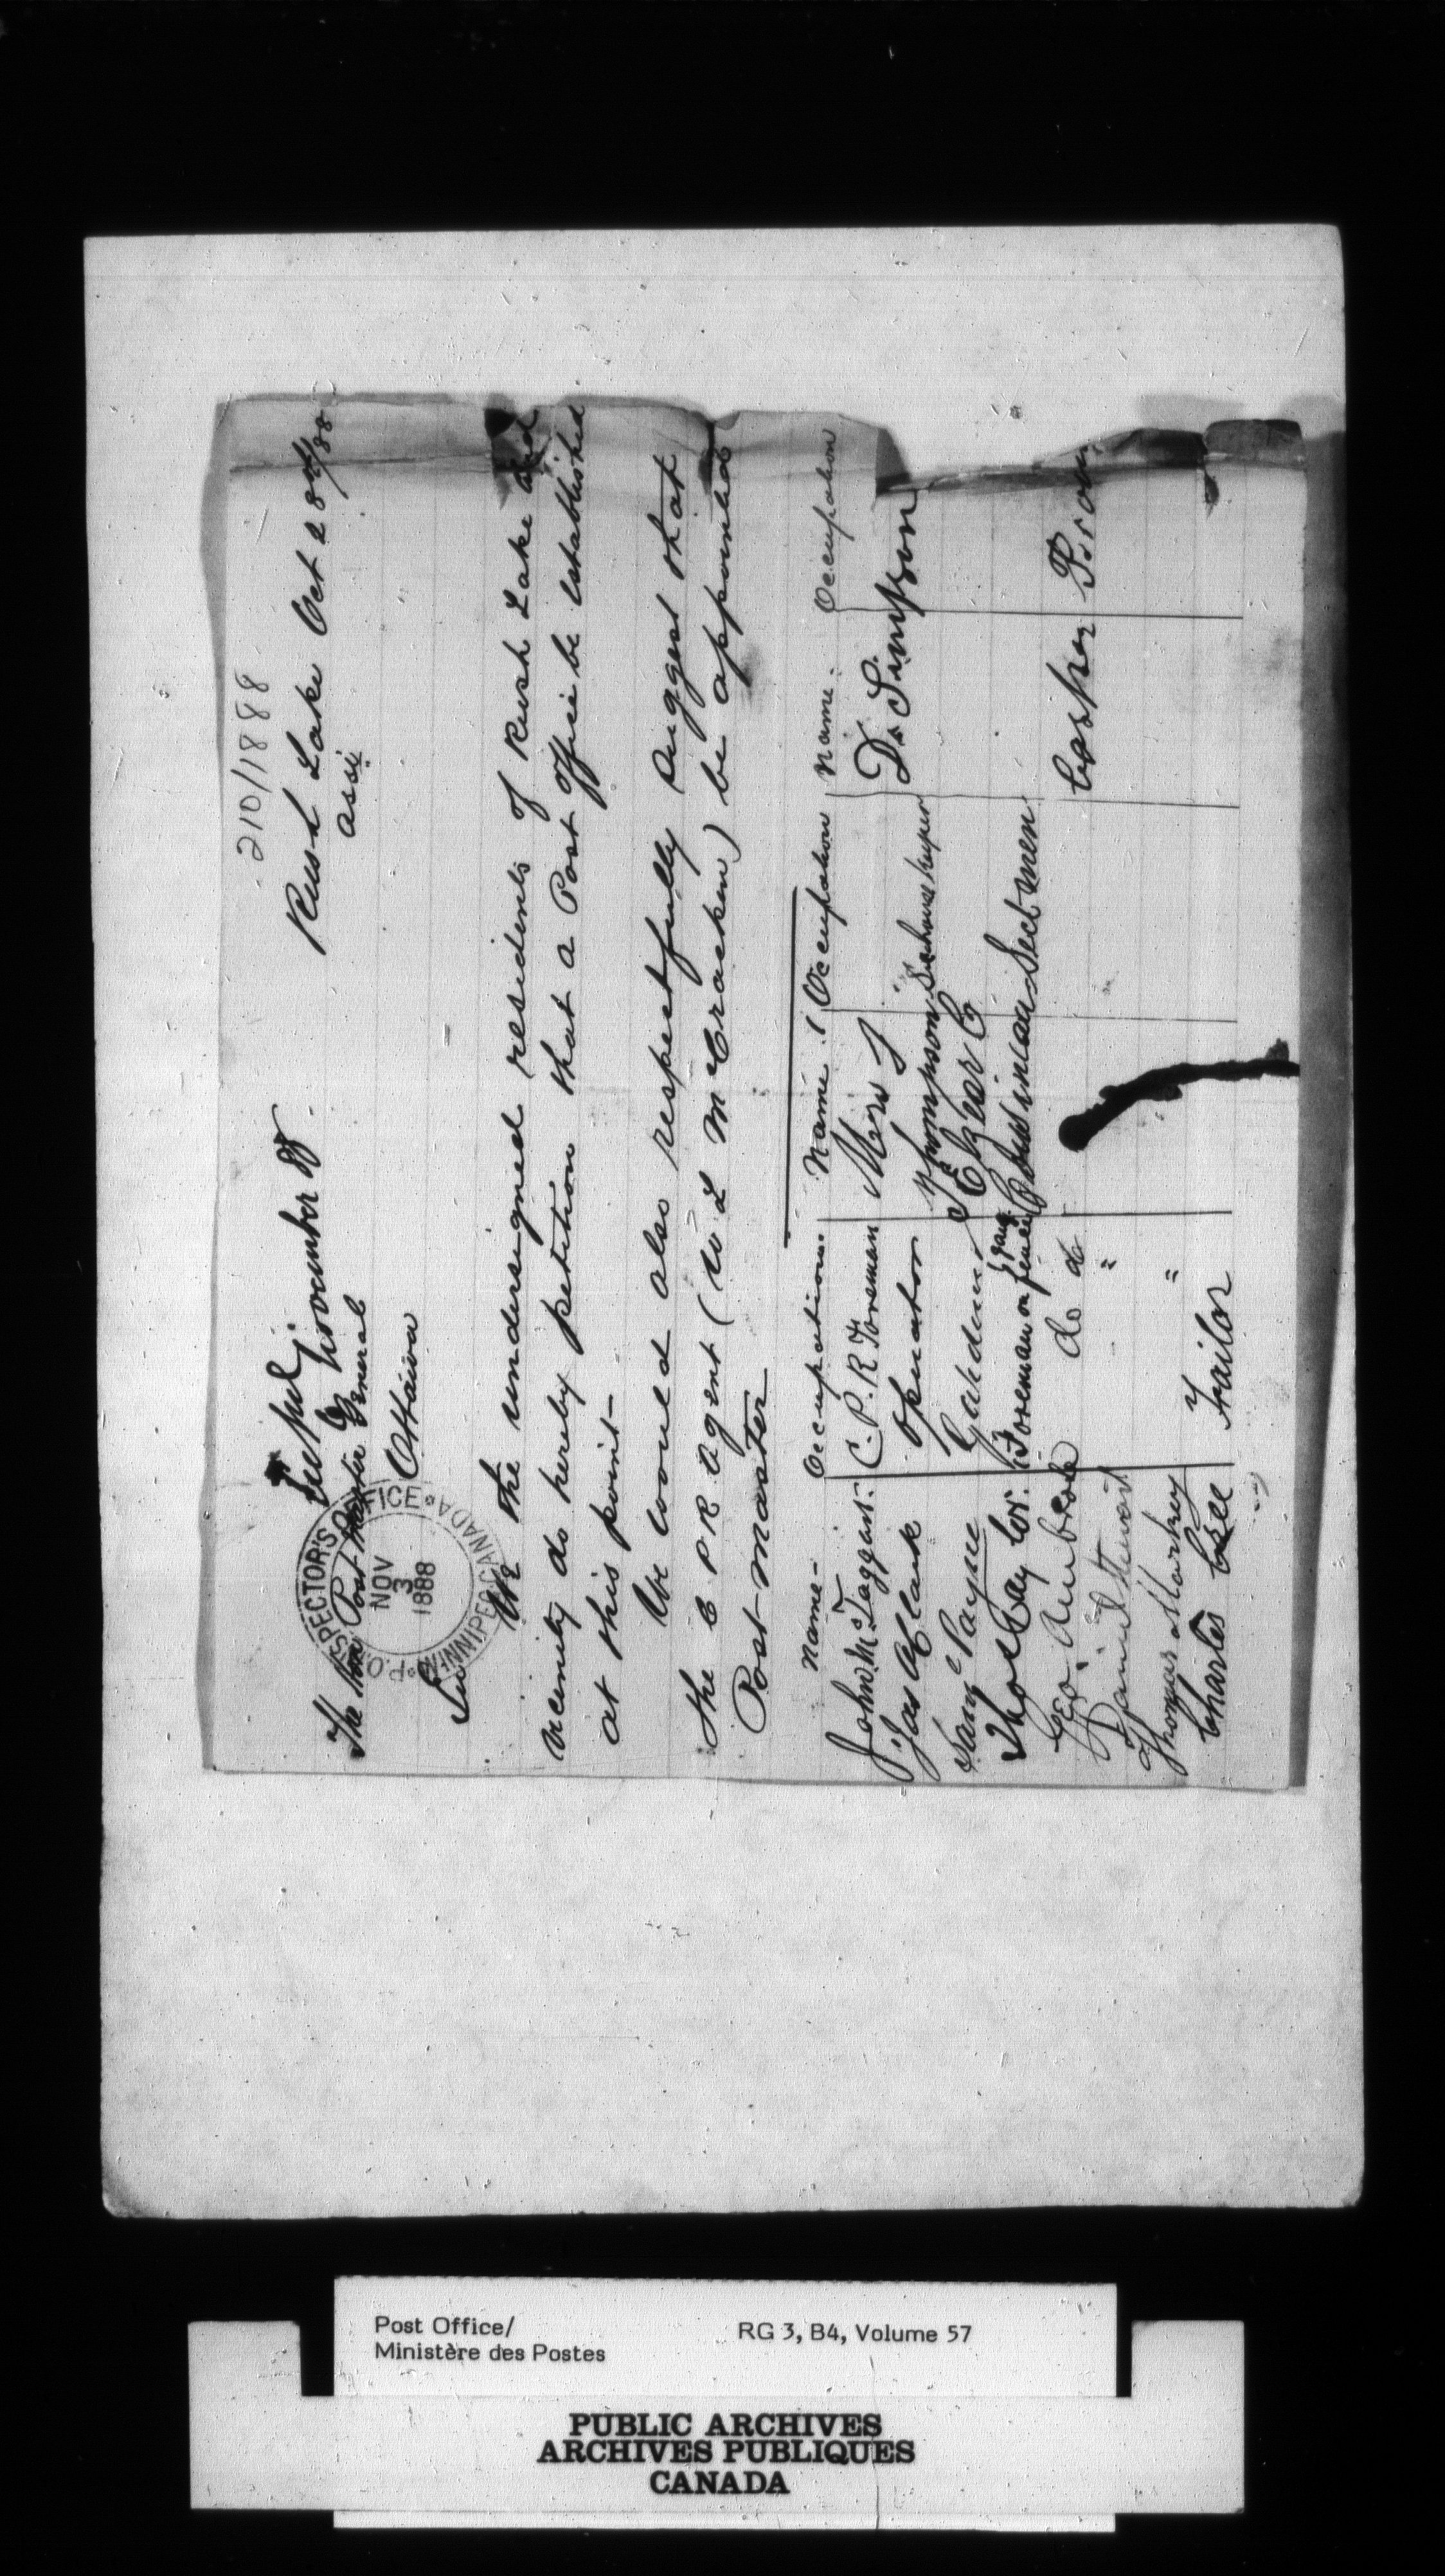 210/1888
Rush Lake Oct 28th/88
Assi
November
The Hon. Post Master General
Ottawa
P.O. INSPECTOR'S OFFICE
NOV
3
1888
WINNIPEG CANADA
Sir
We the undersigned residents of Rush Lake and
vicinity do hereby petition that a Post Office be established
at this point—
We would also respectfully suggest that
the C P R Agent (W L McCracken) be appointed
Post-master
Name— Occupation: Name: Occupation Name: Occupation
John McTaggart. C.P.R Foreman Mrs J Thompson House keeper D. Simpson
Jas A Clark Operator
Saml Payne Gardener
Thos Day Cor. Foreman on fence gang Sectmen Casper
Geo. Ambrose do do
Daniel Stewart "
Thomas Starkey "
Charles Tailor
Post Office/
Ministère des Postes
RG 3, B4, Volume 57
PUBLIC ARCHIVES
ARCHIVES PUBLIQUES
CANADA